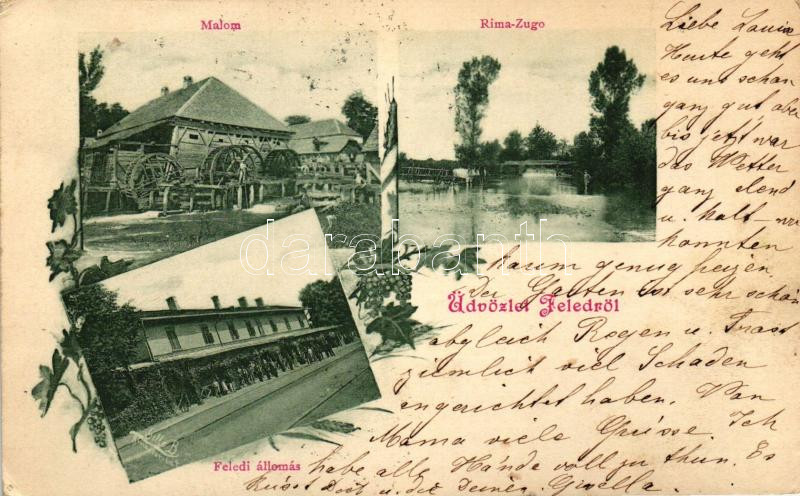 Malom
Rima-Zugo
Liebe Louise
Heute geht
es uns schon
ganz gut aber
bis jetzt war
das Wetter
ganz elend
u. kalt - wir
konnten
kaum genug heizen
Der Garten ist sehr schön
Üdvözlet Feledről
obgleich Regen u. Frost
ziemlich viel Schaden
angerichtet haben. Von
Mama viele Grüsse. Ich
Feledi állomás
habe alle Hände voll zu thun. Es
küsst Dich u. die Deinen Gisella.
darabanth